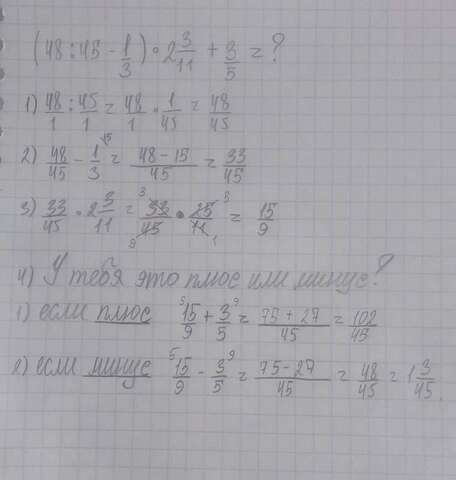 (48:45 - 1/3) • 2 3/11 + 3/5 = ?
1) 48/1 : 45/1 = 48/1 • 1/45 = 48/45
2) 48/45 - 1/3 ^15 = 48-15/45 = 33/45
3) 33/45 • 2 3/11 = 33/45 • 25/11 = 15/9
3 5
9 1
4) У тебя это плюс или минус?
1) если плюс ^5 15/9 + 3/5 ^9 = 75+27/45 = 102/45
2) если минус ^5 15/9 - 3/5 ^9 = 75-27/45 = 48/45 = 1 3/45.